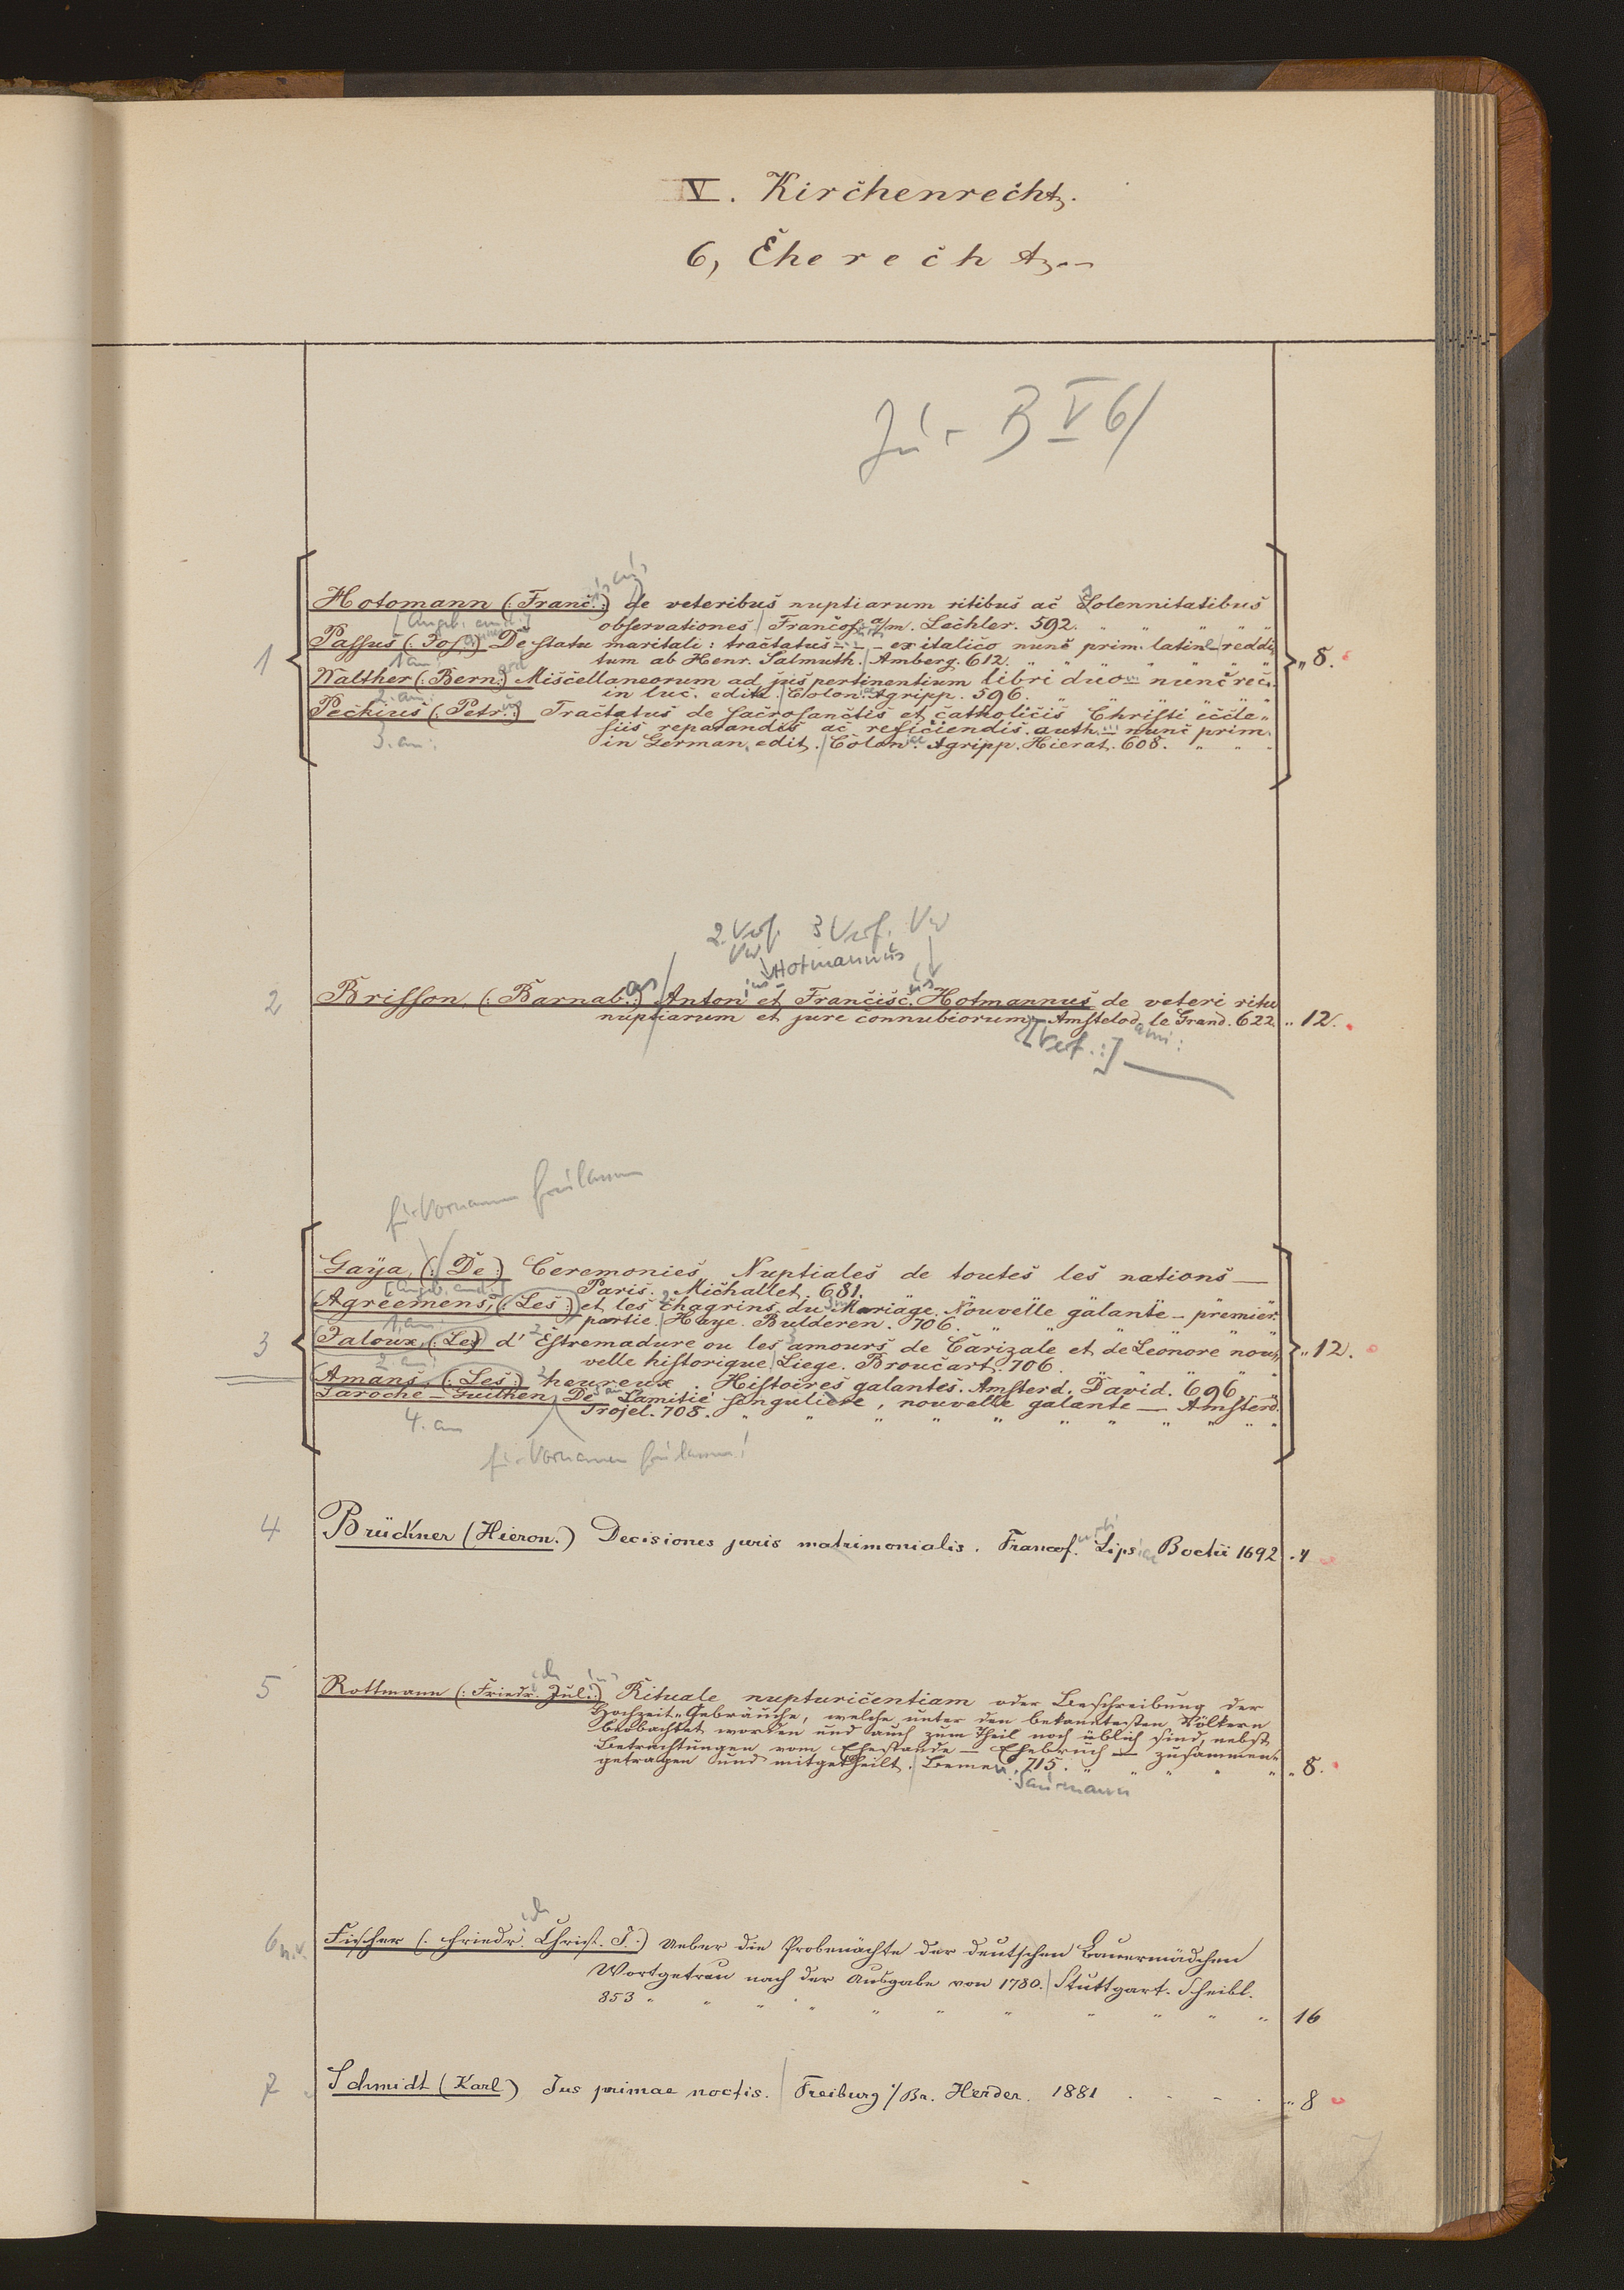 V. Kirchenrecht.
6, Eherecht.
Jur B V 6/
1
Hotomann (: Franc. :) de veteribus nuptiarum ritibus ac Solennitatibus
observationes / Francof. a/m. Lechler. 592. " " " " "
[Angeb. and.:]
Passus (: Jos. :) De statu maritali : tractatus — ex italico nunc prim. latine reddi„
tum ab Henr. Salmuth. / Amberg. 612. " " " " " "
1 an:
Walther (: Bern. :) Miscellaneorum ad jus pertinentium libri duo — nunc rec.
in luc. edita. / Colon. Agripp. 596.
2. an:
Peckius (: Petr. :) Tractatus de sacrosanctis et catholicis Christi eccle„
siis reparandis ac reficiendis. auth. — nunc prim.
in German. edit. / Colon. Agripp. Hierat. 608. " " "
3. an:
" 8.
2. Verf. 3 Verf. Vw
Vw
Hotmannus
2
Brisson, (: Barnab. :) Anton et Francisc. Hotmannus de veteri ritu
nuptiarum et jure connubiorum, Amstelod. le Grand. 622.
" 12.
[Verf.:]
für Vornamen freilassen
3
Gaÿa, (: De :) Ceremonies Nuptiales de toutes les nations —
Paris. Michallet. 681.
[Angeb. and.:]
Agreemens, (: Les :) et les chagrins du Mariage. Nouvelle galante — premier.
partie. / Haye. Bulderen. 706. " " " " " "
1. an:
Jaloux, (: Le) d' Estremadure ou les amours de Carizale et de Leonore nou„
velle historique / Liege. Broucart. 706.
2. an:
Amans, (: Les :) heureux. Histoires galantes. Amsterd. David. 696
Laroche — Guilhen, De Lamitié singuliere, nouvelle galante — Amsterd.
Trojel. 708. " " " " " " " " "
4. an
" 12.
für Vornamen freilassen!
4
Brückner (Hieron.) Decisiones juris matrimonialis. Francof. Lips. Boetii 1692
" 4
5
Rottmann (: Friedr. Jul. :) Rituale nupturicentiam oder Beschreibung der
Hochzeit-Gebräuche, welche unter den bekanntesten Völkern
beobachtet worden und auch zum Theil noch üblich sind, nebst
Betrachtungen vom Ehestande — Ehebruch — zusammen„
getragen und mitgetheilt. / Bemen. 715. " " " " "
" 8.
Saurmann
6 n.v.
Fischer (: Friedr. Christ. J. :) Ueber die Probenächte der deutschen Bauermädchen
Wortgetreu nach der Ausgabe von 1780. / Stuttgart. Scheibl.
853 " " " " " " " " " " "
16
7
Schmidt (Karl) Jus primae noctis. / Freiburg i/Br. Herder. 1881 . . . .
" 8